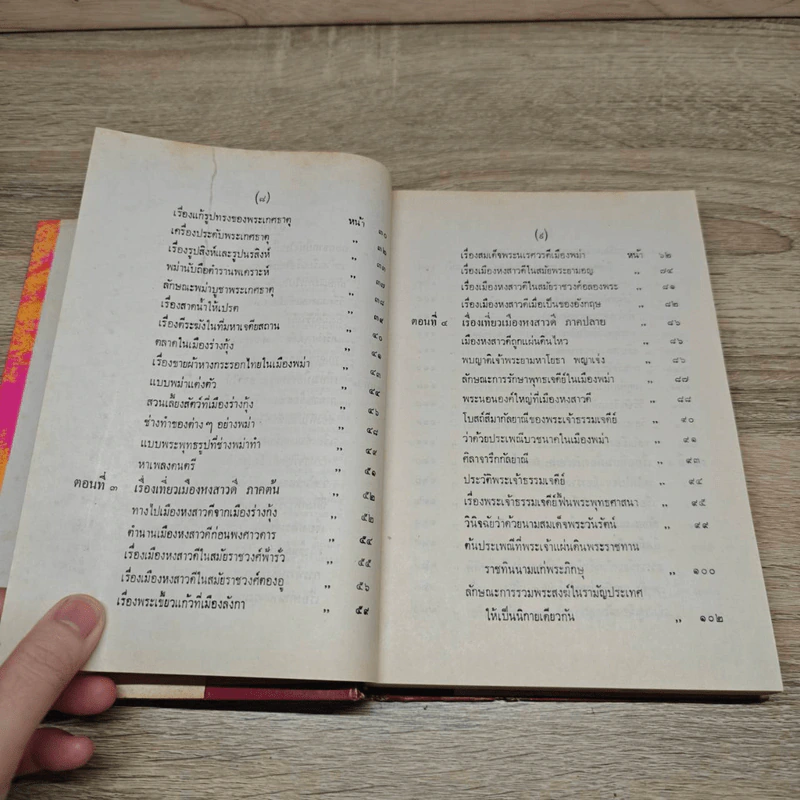 (๘)
หน้า
เรื่องแก้รูปทรงของพระเกศธาตุ ,, ๓๐
เครื่องประดับพระเกศธาตุ ,, ๓๒
เรื่องรูปสิงห์และรูปนรสิงห์ ,, ๓๓
พม่านับถือตำราเทพเคราะห์ ,, ๓๗
ลักษณะพม่าบูชาพระเกศธาตุ ,, ๓๘
เรื่องสาดน้ำให้เปรต ,, ๓๙
เรื่องตีระฆังในที่มหาเจดียสถาน ,, ๔๐
ตลาดในเมืองร่างกุ้ง ,, ๔๑
เรื่องขายผ้าหางกระรอกไทยในเมืองพม่า ,, ๔๓
แบบพม่าแต่งตัว ,, ๔๔
สวนเลี้ยงสัตว์ที่เมืองร่างกุ้ง ,, ๔๖
ช่างทำของต่างๆ อย่างพม่า ,, ๔๘
แบบพระพุทธรูปที่ช่างพม่าทำ ,, ๔๙
หาเพลงดนตรี ,, ๕๑
ตอนที่ ๓ เรื่องเที่ยวเมืองหงสาวดี ภาคต้น ,, ๕๒
ทางไปเมืองหงสาวดีจากเมืองร่างกุ้ง ,, ๕๒
ตำนานเมืองหงสาวดีก่อนพงศาวดาร ,, ๕๔
เรื่องเมืองหงสาวดีในสมัยราชวงศ์ฟ้ารั่ว ,, ๕๕
เรื่องเมืองหงสาวดีในสมัยราชวงศ์ตองอู ,, ๕๖
เรื่องพระเขี้ยวแก้วที่เมืองลังกา ,, ๕๙
(๙)
เรื่องสมเด็จพระนเรศวรตีเมืองพม่า หน้า ๖๒
เรื่องเมืองหงสาวดีในสมัยพระยามอญ ,, ๗๔
เรื่องเมืองหงสาวดีในสมัยราชวงศ์อลองพระ ,, ๘๑
เรื่องเมืองหงสาวดีเมื่อเป็นของอังกฤษ ,, ๘๒
ตอนที่ ๔ เรื่องเที่ยวเมืองหงสาวดี ภาคปลาย ,, ๘๖
เมืองหงสาวดีถูกแผ่นดินไหว ,, ๘๖
พบญาติเจ้าพระยามหาโยธา พญาเจ่ง ,, ๘๖
ลักษณะการรักษาพุทธเจดีย์ในเมืองพม่า ,, ๘๗
พระนอนองค์ใหญ่ที่เมืองหงสาวดี ,, ๘๘
โบสถ์สีมากัลยาณีของพระเจ้าธรรมเจดีย์ ,, ๙๐
ว่าด้วยประเพณีบวชนาคในเมืองพม่า ,, ๙๑
ศิลาจารึกกัลยาณี ,, ๙๓
ประวัติพระเจ้าธรรมเจดีย์ ,, ๙๔
เรื่องพระเจ้าธรรมเจดีย์ฟื้นพระพุทธศาสนา ,, ๙๕
วินิจฉัยว่าด้วยนามสมเด็จพระวันรัตน์ ,, ๙๙
ต้นประเพณีที่พระเจ้าแผ่นดินพระราชทาน
ราชทินนามแก่พระภิกษุ ,, ๑๐๐
ลักษณะการรวมพระสงฆ์ในรามัญประเทศ
ให้เป็นนิกายเดียวกัน ,, ๑๐๒